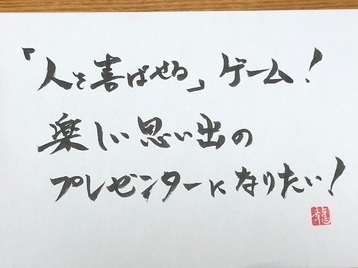 「人を喜ばせる」ゲーム！
楽しい思い出の
プレゼンターになりたい！